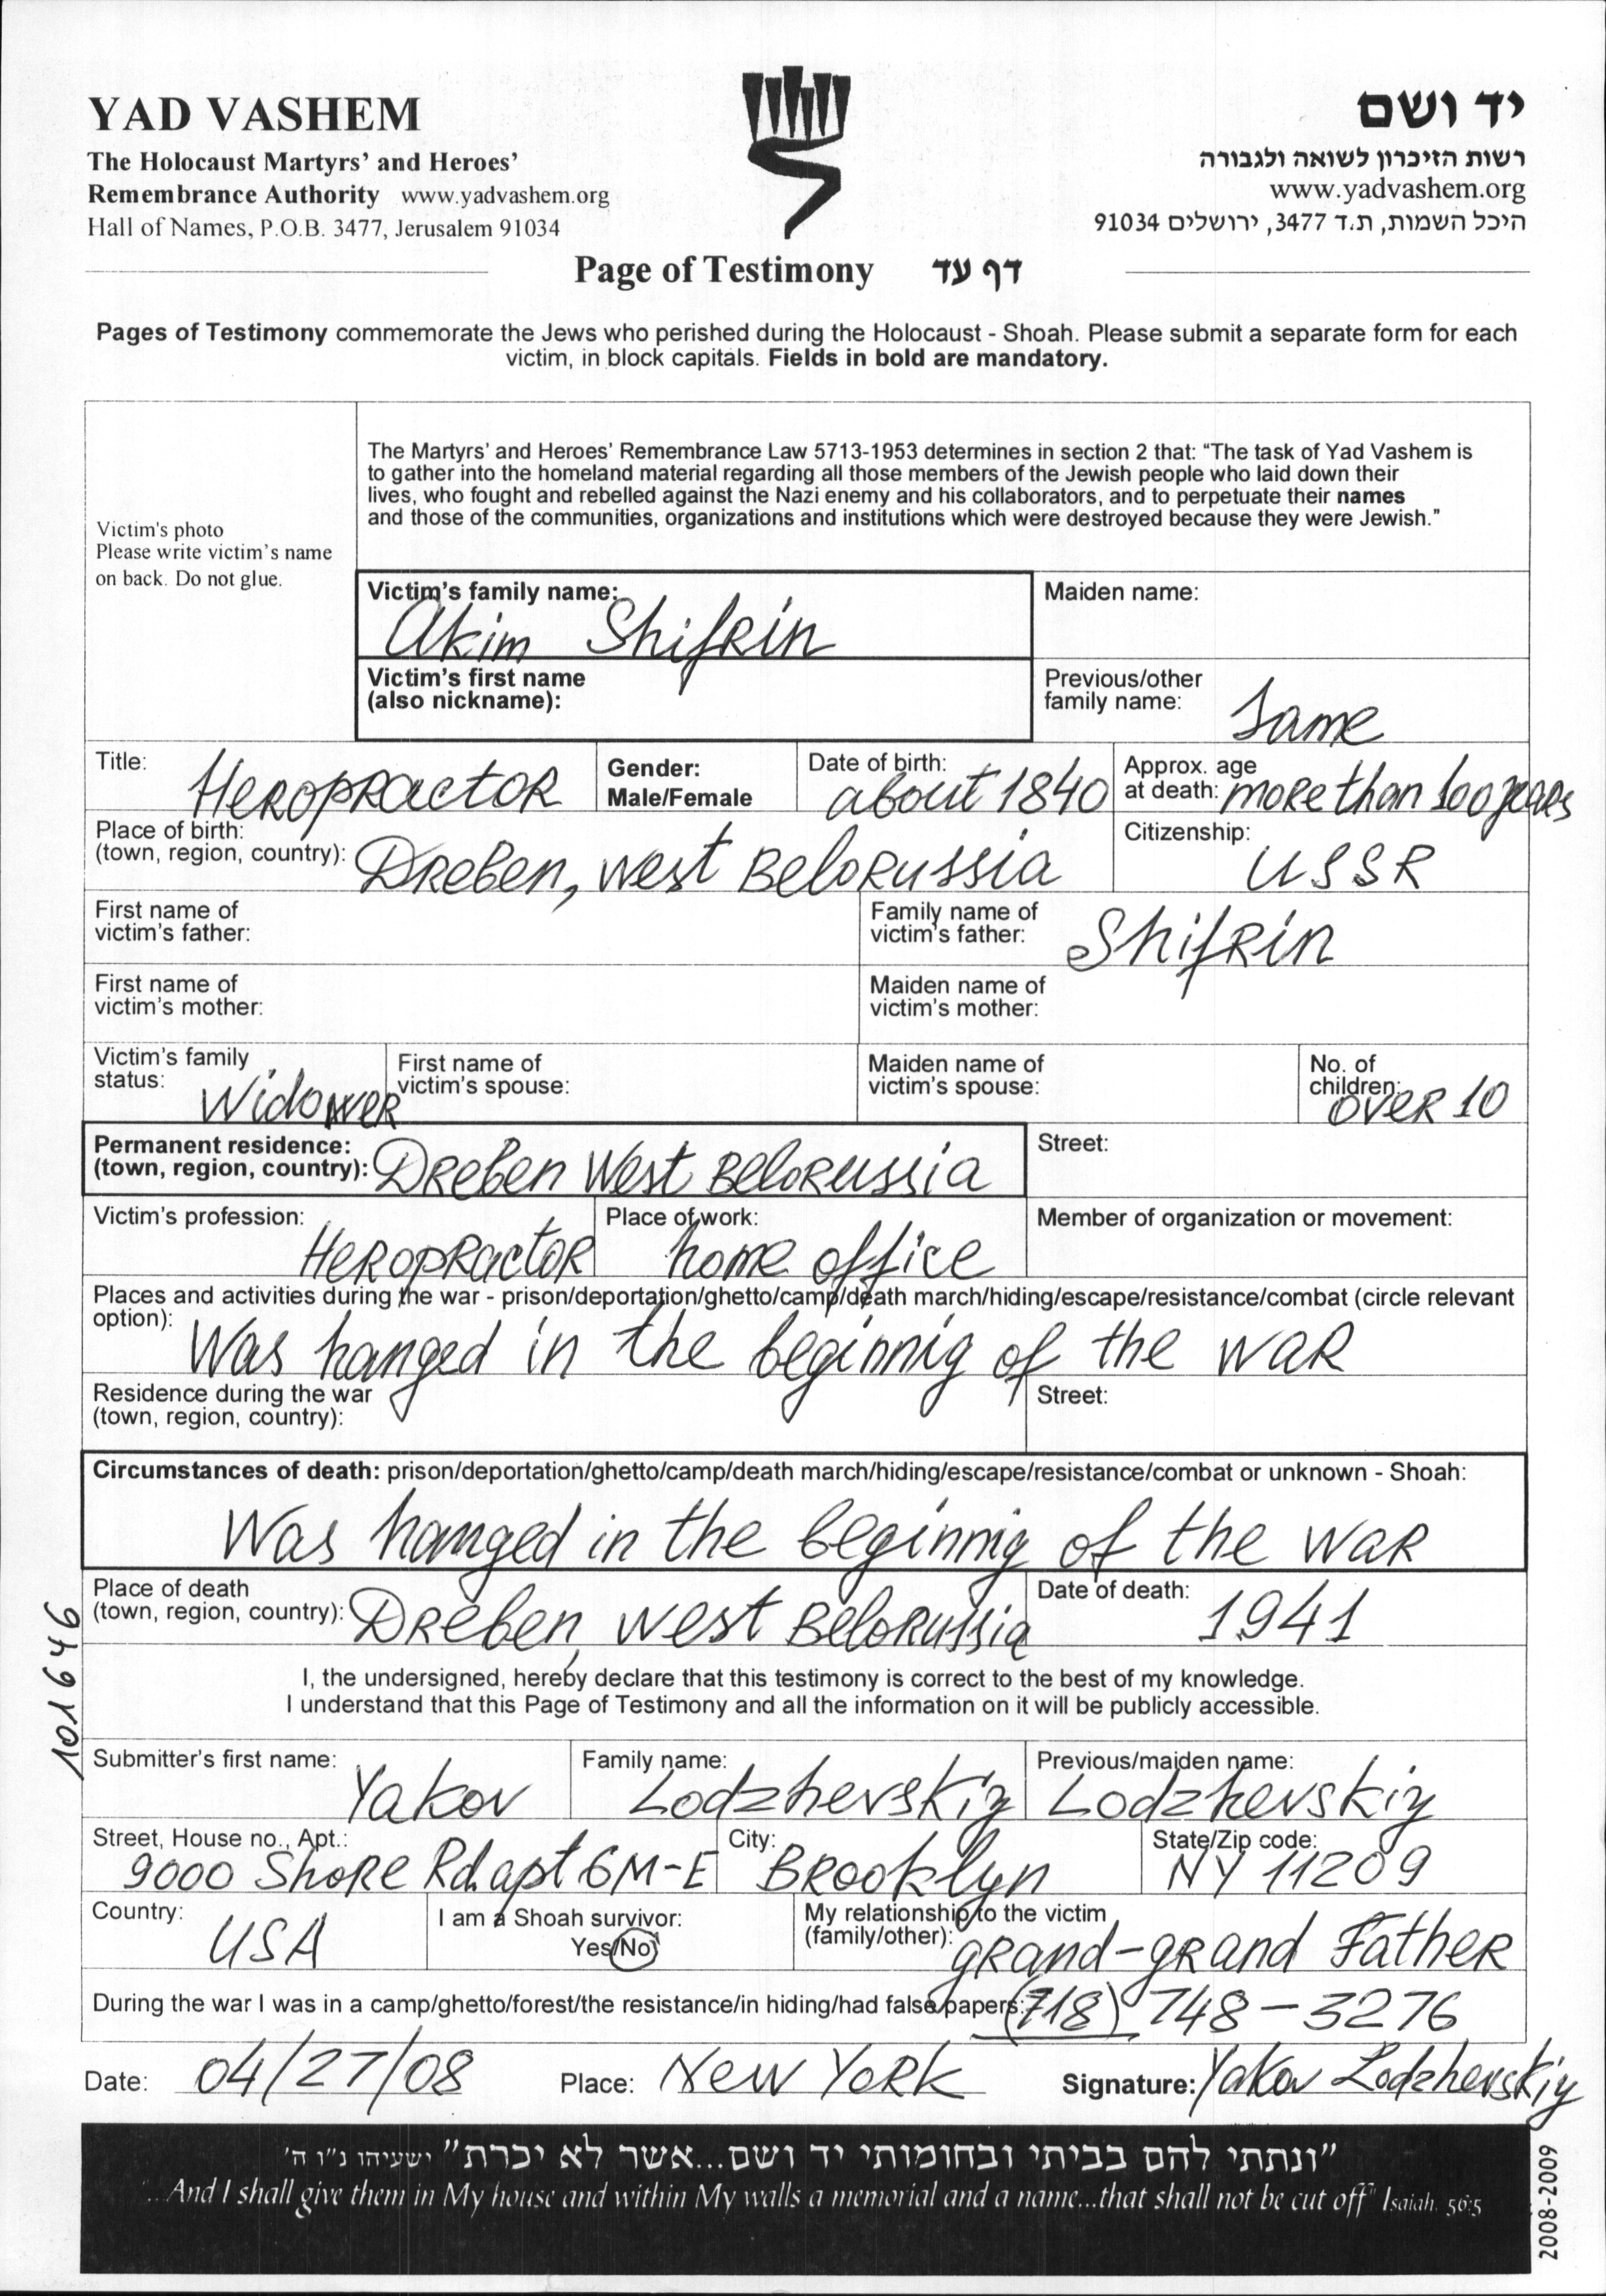 YAD VASHEM
The Holocaust Martyrs' and Heroes'
Remembrance Authority www.yadvashem.org
Hall of Names, P.O.B. 3477, Jerusalem 91034
יד ושם
רשות הזיכרון לשואה ולגבורה
www.yadvashem.org
היכל השמות, ת.ד 3477, ירושלים 91034
Page of Testimony דף עד
Pages of Testimony commemorate the Jews who perished during the Holocaust - Shoah. Please submit a separate form for each
victim, in block capitals. Fields in bold are mandatory.
Victim's photo
Please write victim's name
on back. Do not glue.
The Martyrs' and Heroes' Remembrance Law 5713-1953 determines in section 2 that: "The task of Yad Vashem is
to gather into the homeland material regarding all those members of the Jewish people who laid down their
lives, who fought and rebelled against the Nazi enemy and his collaborators, and to perpetuate their names
and those of the communities, organizations and institutions which were destroyed because they were Jewish."
Victim's family name:
Akim Shifrin
Maiden name:
Victim's first name
(also nickname):
Previous/other
family name: Same
Title: Heropractor
Gender:
Male/Female
Date of birth:
about 1840
Approx. age
at death: more than 100 years
Place of birth:
(town, region, country): Dreben, West Belorussia
Citizenship:
USSR
First name of
victim's father:
Family name of
victim's father: Shifrin
First name of
victim's mother:
Maiden name of
victim's mother:
Victim's family
status: Widower
First name of
victim's spouse:
Maiden name of
victim's spouse:
No. of
children: over 10
Permanent residence:
(town, region, country): Dreben West Belorussia
Street:
Victim's profession:
Heropractor
Place of work:
home office
Member of organization or movement:
Places and activities during the war - prison/deportation/ghetto/camp/death march/hiding/escape/resistance/combat (circle relevant
option): Was hanged in the beginnig of the war
Residence during the war
(town, region, country):
Street:
Circumstances of death: prison/deportation/ghetto/camp/death march/hiding/escape/resistance/combat or unknown - Shoah:
Was hanged in the beginnig of the war
Place of death
(town, region, country): Dreben, West Belorussia
Date of death:
1941
I, the undersigned, hereby declare that this testimony is correct to the best of my knowledge.
I understand that this Page of Testimony and all the information on it will be publicly accessible.
101646
Submitter's first name:
Yakov
Family name:
Lodzhevskiy
Previous/maiden name:
Lodzhevskiy
Street, House no., Apt.:
9000 Shore Rd. apt 6M-E
City:
Brooklyn
State/Zip code:
NY 11209
Country:
USA
I am a Shoah survivor:
Yes/No
My relationship to the victim
(family/other): grand-grand Father
During the war I was in a camp/ghetto/forest/the resistance/in hiding/had false papers: (718) 748-3276
Date: 04/27/08 Place: New York Signature: Yakov Lodzhevskiy
"ונתתי להם בביתי ובחומותי יד ושם...אשר לא יכרת" ישעיהו נ"ו ה'
"...And I shall give them in My house and within My walls a memorial and a name...that shall not be cut off" Isaiah. 56:5
2008-2009